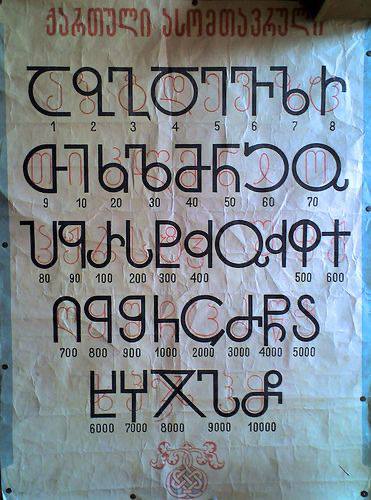 ქართული ასომთავრული
Ⴀ Ⴁ Ⴂ Ⴃ Ⴄ Ⴅ Ⴆ Ⴡ
1 2 3 4 5 6 7 8
Ⴇ Ⴈ Ⴉ Ⴊ Ⴋ Ⴌ Ⴢ Ⴍ
9 10 20 30 40 50 60 70
Ⴎ Ⴏ Ⴐ Ⴑ Ⴒ Ⴣ ႭჃ Ⴔ Ⴕ
80 90 100 200 300 400 500 600
Ⴖ Ⴗ Ⴘ Ⴙ Ⴚ Ⴛ Ⴜ Ⴝ
700 800 900 1000 2000 3000 4000 5000
Ⴞ Ⴤ Ⴟ Ⴠ Ⴥ
6000 7000 8000 9000 10000